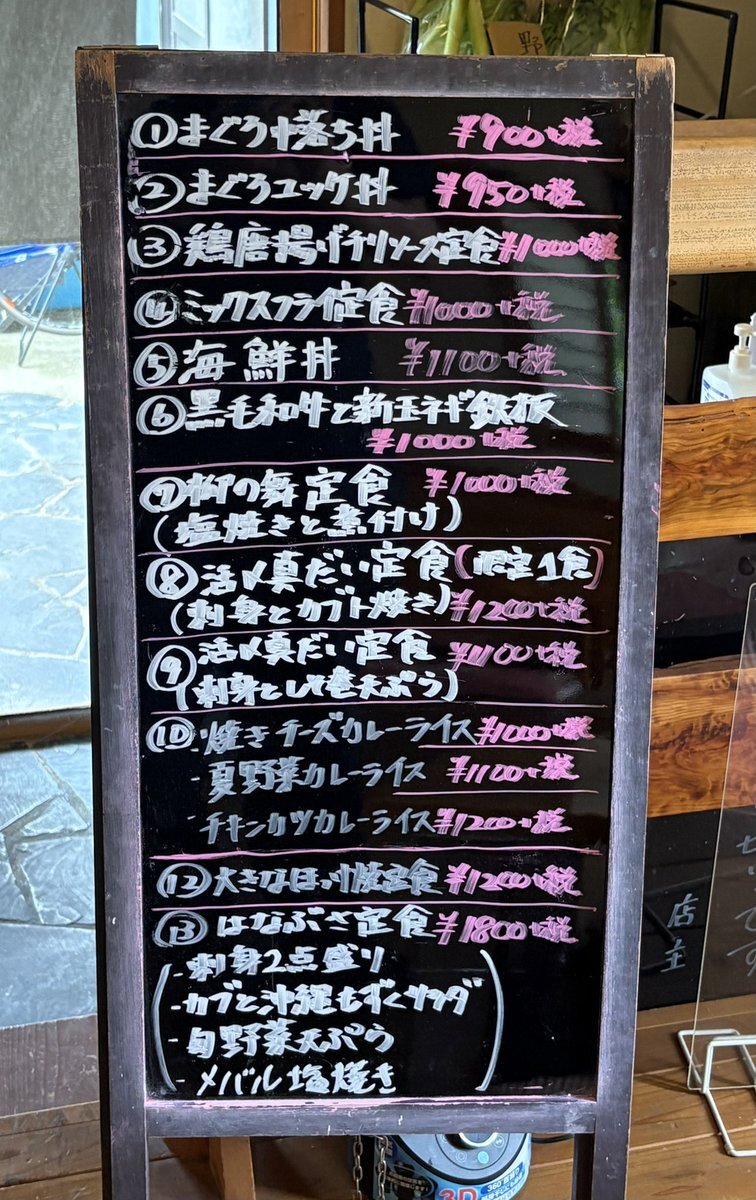 ①まぐろ中落ち丼 ¥900+税
②まぐろユッケ丼 ¥950+税
③鶏唐揚げチリソース定食 ¥1000+税
④ミックスフライ定食 ¥1000+税
⑤海鮮丼 ¥1100+税
⑥黒毛和牛と新玉ネギ鉄板
¥1000+税
⑦柳の舞定食 ¥1000+税
(塩焼きと煮付け)
⑧活〆真だい定食(限定1食)
(刺身とカブト焼き) ¥1200+税
⑨活〆真だい定食 ¥1100+税
(刺身としそ巻天ぷら)
⑩・焼きチーズカレーライス ¥1000+税
・夏野菜カレーライス ¥1100+税
・チキンカツカレーライス ¥1200+税
⑫大きなほっけ焼定食 ¥1200+税
⑬はなぶさ定食 ¥1800+税
・刺身2点盛り
・カブと沖縄もずくサラダ
・旬野菜天ぷら
・メバル塩焼き
野
店主
360°
3D